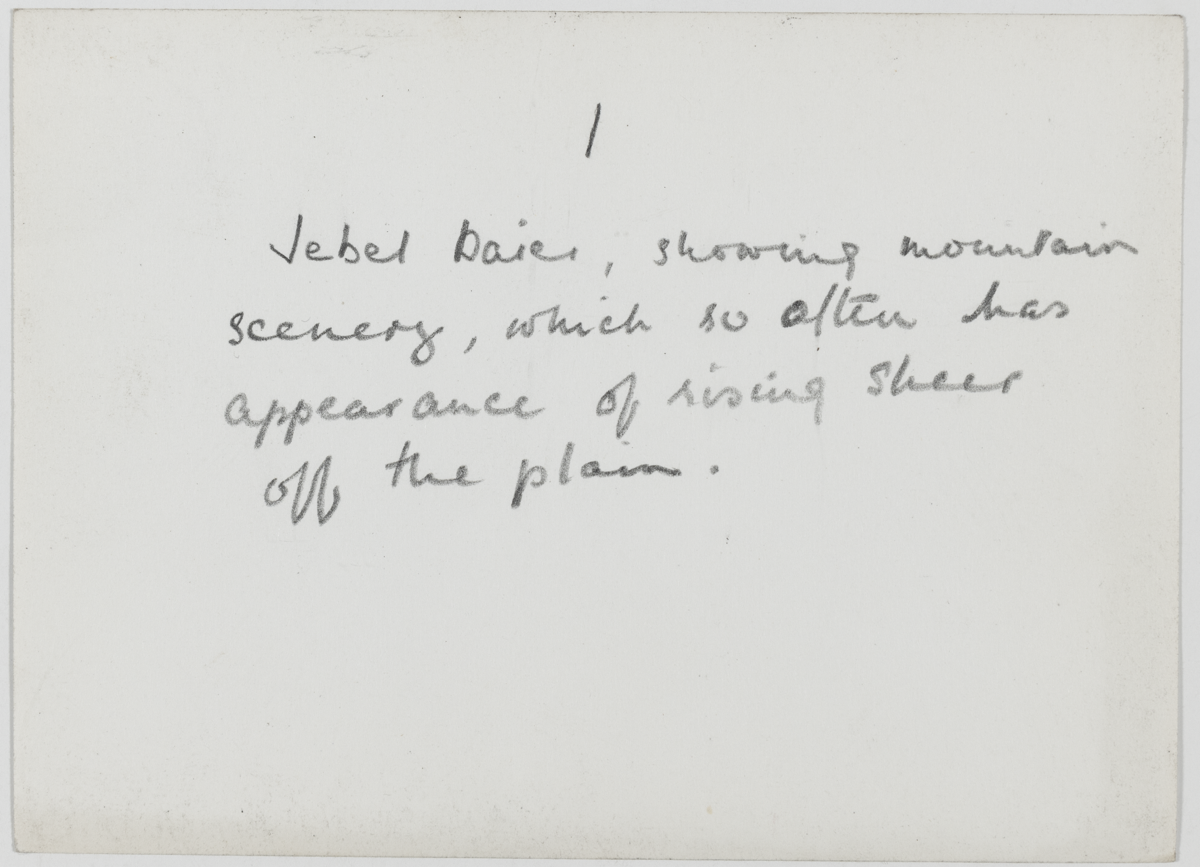 1
Jebel Daier, showing mountain
scenery, which so often has
appearance of rising sheer
off the plain.